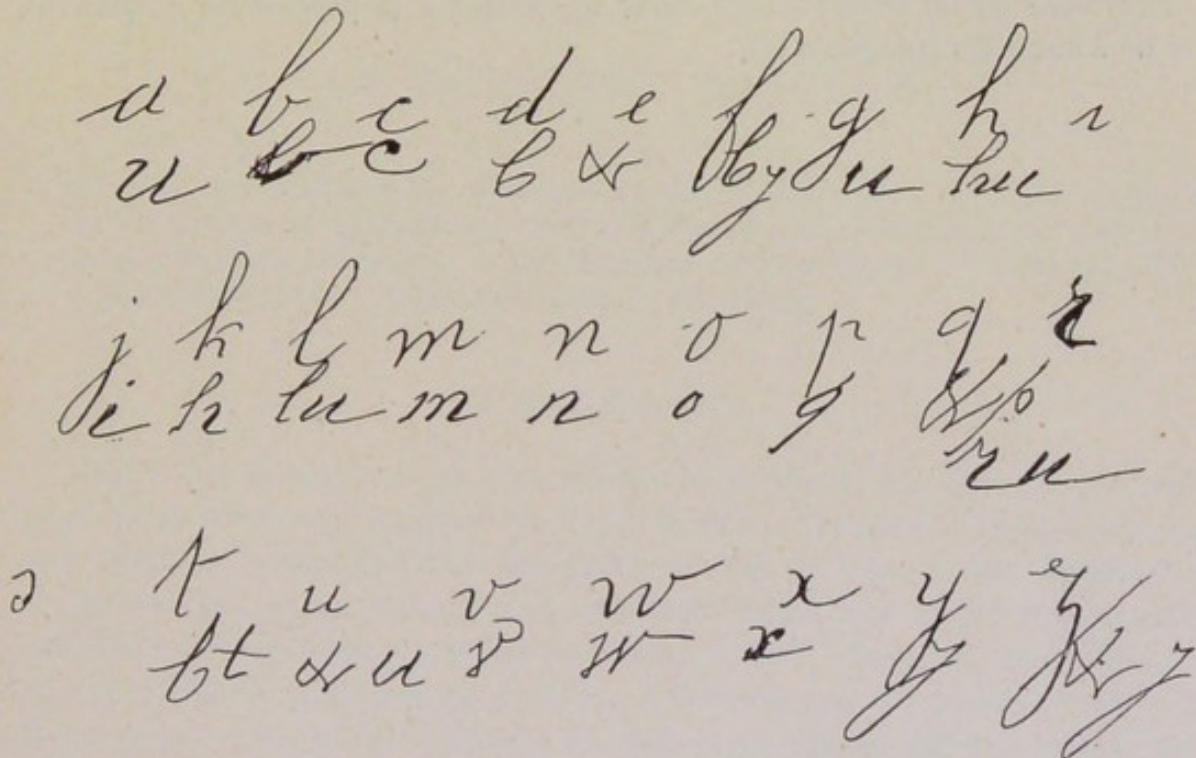 a b c d e f g h i
u b c b & by u hu
j k l m n o p q r
i h lu m n o
ru
s t u v w x y z
bt & u v w x y & y